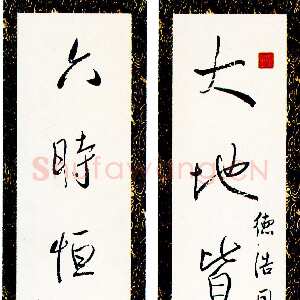 大地皆
德浩
六時恒
Shufawu.CN